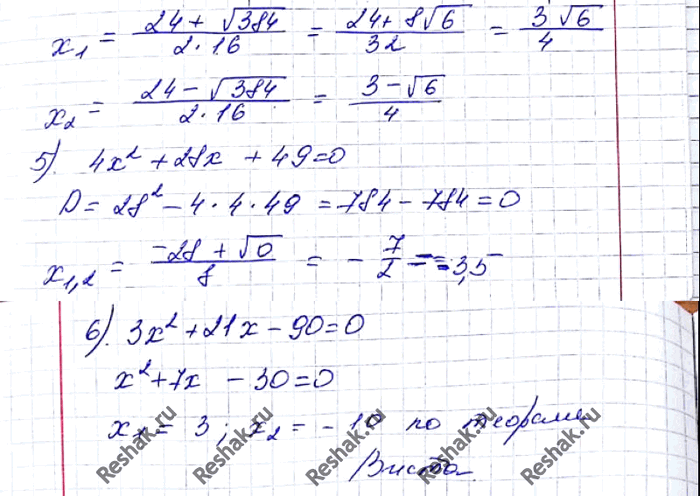 x₁ = (24 + √384)/(2·16) = (24 + 8√6)/32 = (3 √6)/4
x₂ = (24 − √384)/(2·16) = (3 − √6)/4
5). 4x² + 28x + 49 = 0
D = 28² − 4·4·49 = 784 − 784 = 0
x₁,₂ = (−28 + √0)/8 = −7/2 = −3,5
6). 3x² + 21x − 90 = 0
x² + 7x − 30 = 0
x₁ = 3; x₂ = −10 по теореме
Виета
Reshak.ru Reshak.ru Reshak.ru Reshak.ru Reshak.ru